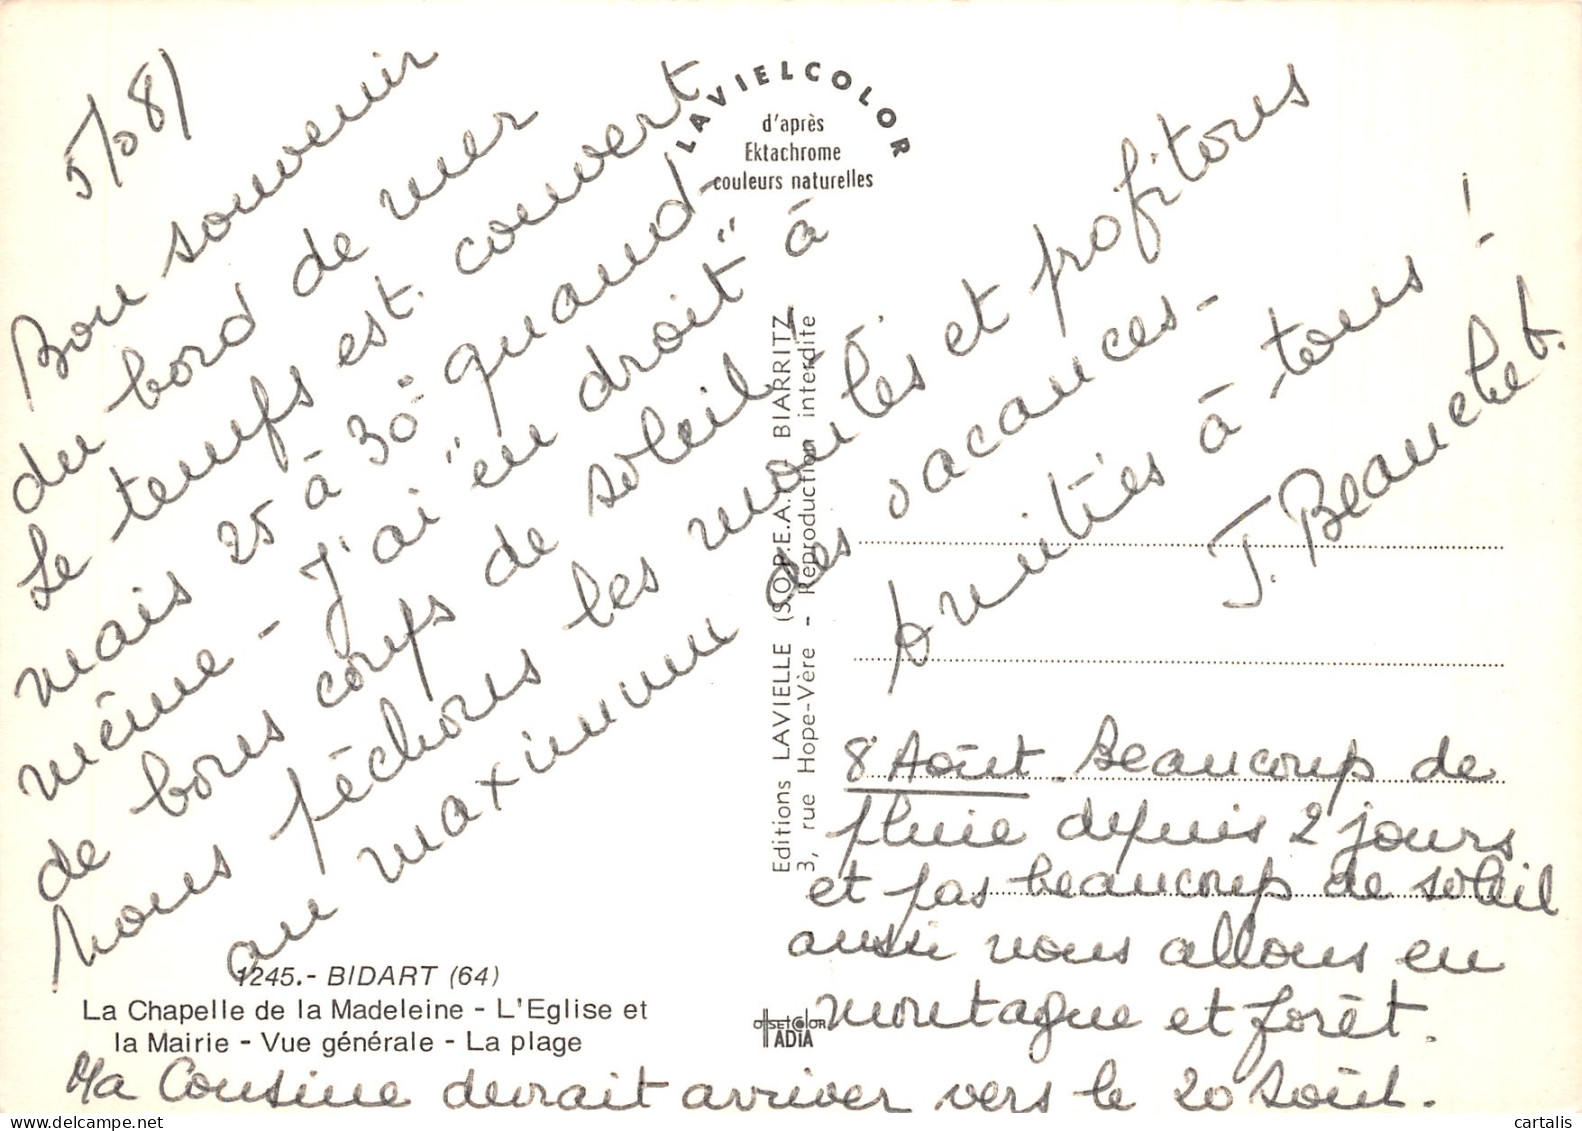 5/08/
Bon souvenir
du bord de mer
Le temps est couvert
mais 25 à 30° quand-
même - J'ai "en droit" à
de bons coups de soleil!
nous pêchons les moules et profitons
au maximum des vacances -
Amitiés à tous !
J. Beauchet.
LAVIELCOLOR
d'après
Ektachrome
couleurs naturelles
Editions LAVIELLE (S.O.P.E.A.) - BIARRITZ
3, rue Hope-Vère - Reproduction interdite
8 Août. Beaucoup de
pluie depuis 2 jours
et pas beaucoup de soleil
aussi nous allons en
montagne et forêt.
Ma Cousine devrait arriver vers le 20 Août.
1245.- BIDART (64)
La Chapelle de la Madeleine - L'Eglise et
la Mairie - Vue générale - La plage
OffsetColor
ADIA
cartalis